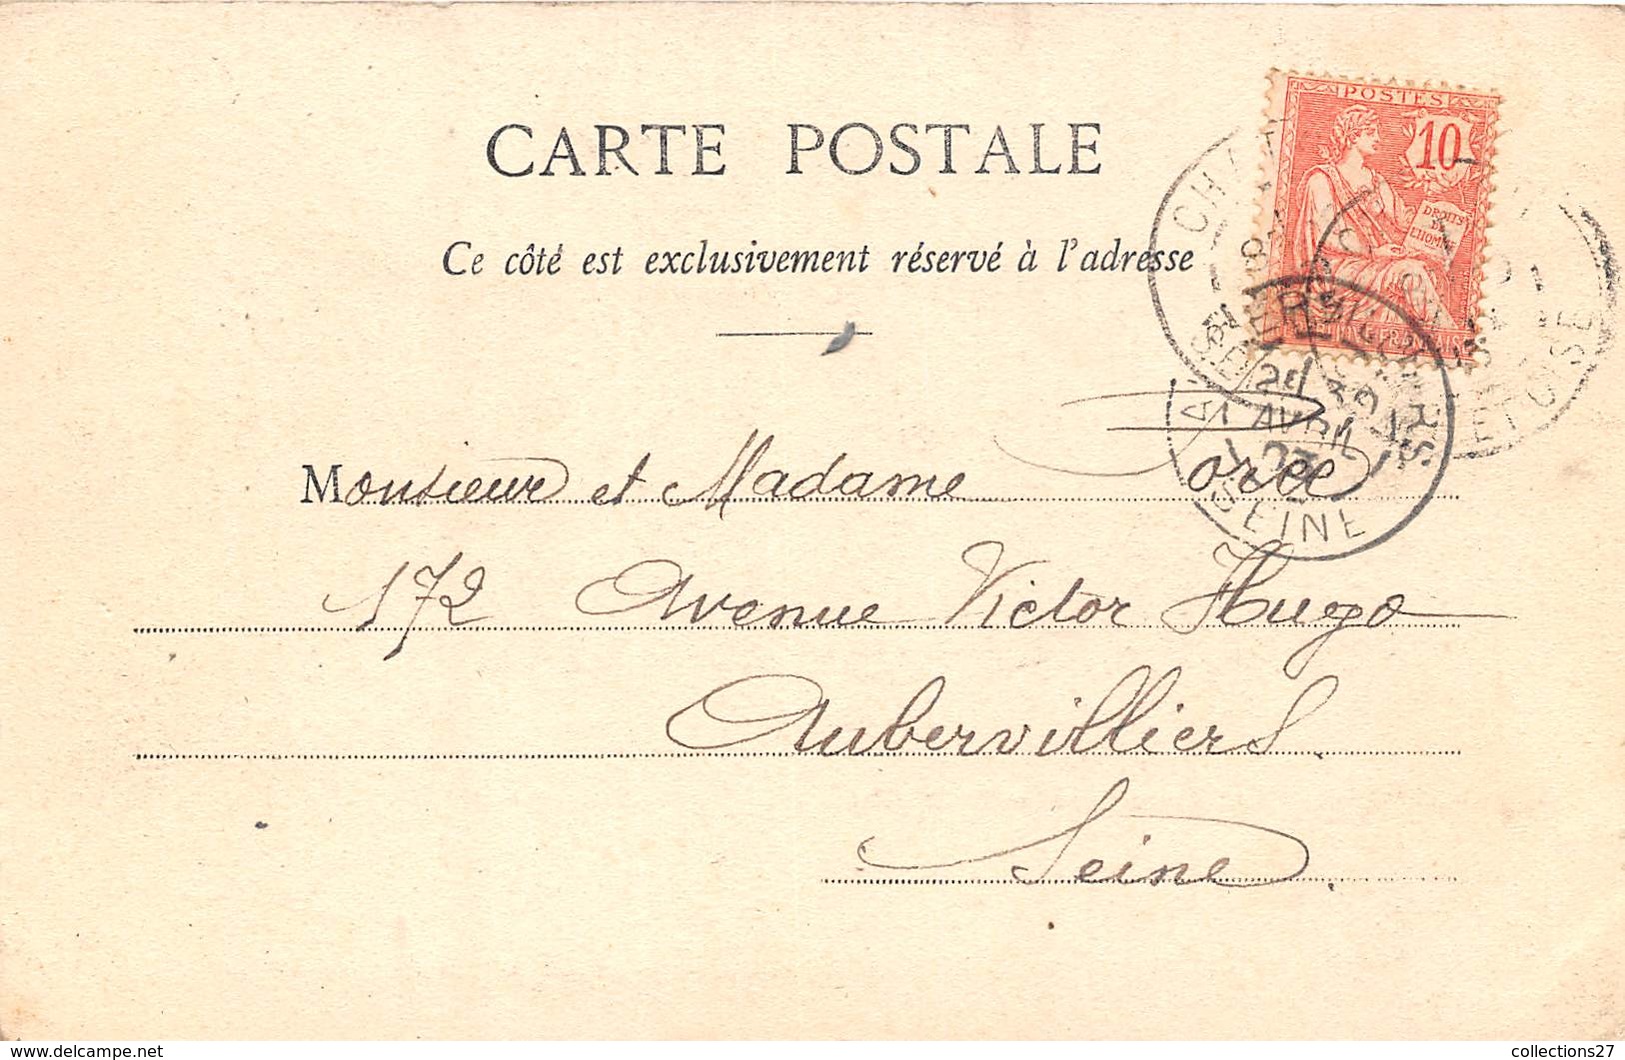 CARTE POSTALE
Ce côté est exclusivement réservé à l'adresse
POSTES
10
DROITS
DE
L'HOMME
AUBERVILLIERS
1 AVRIL
03
SEINE
SEINE ET OISE
Monsieur et Madame
172 Avenue Victor Hugo
Aubervilliers
Seine.
https://www.delcampe.net
collections27